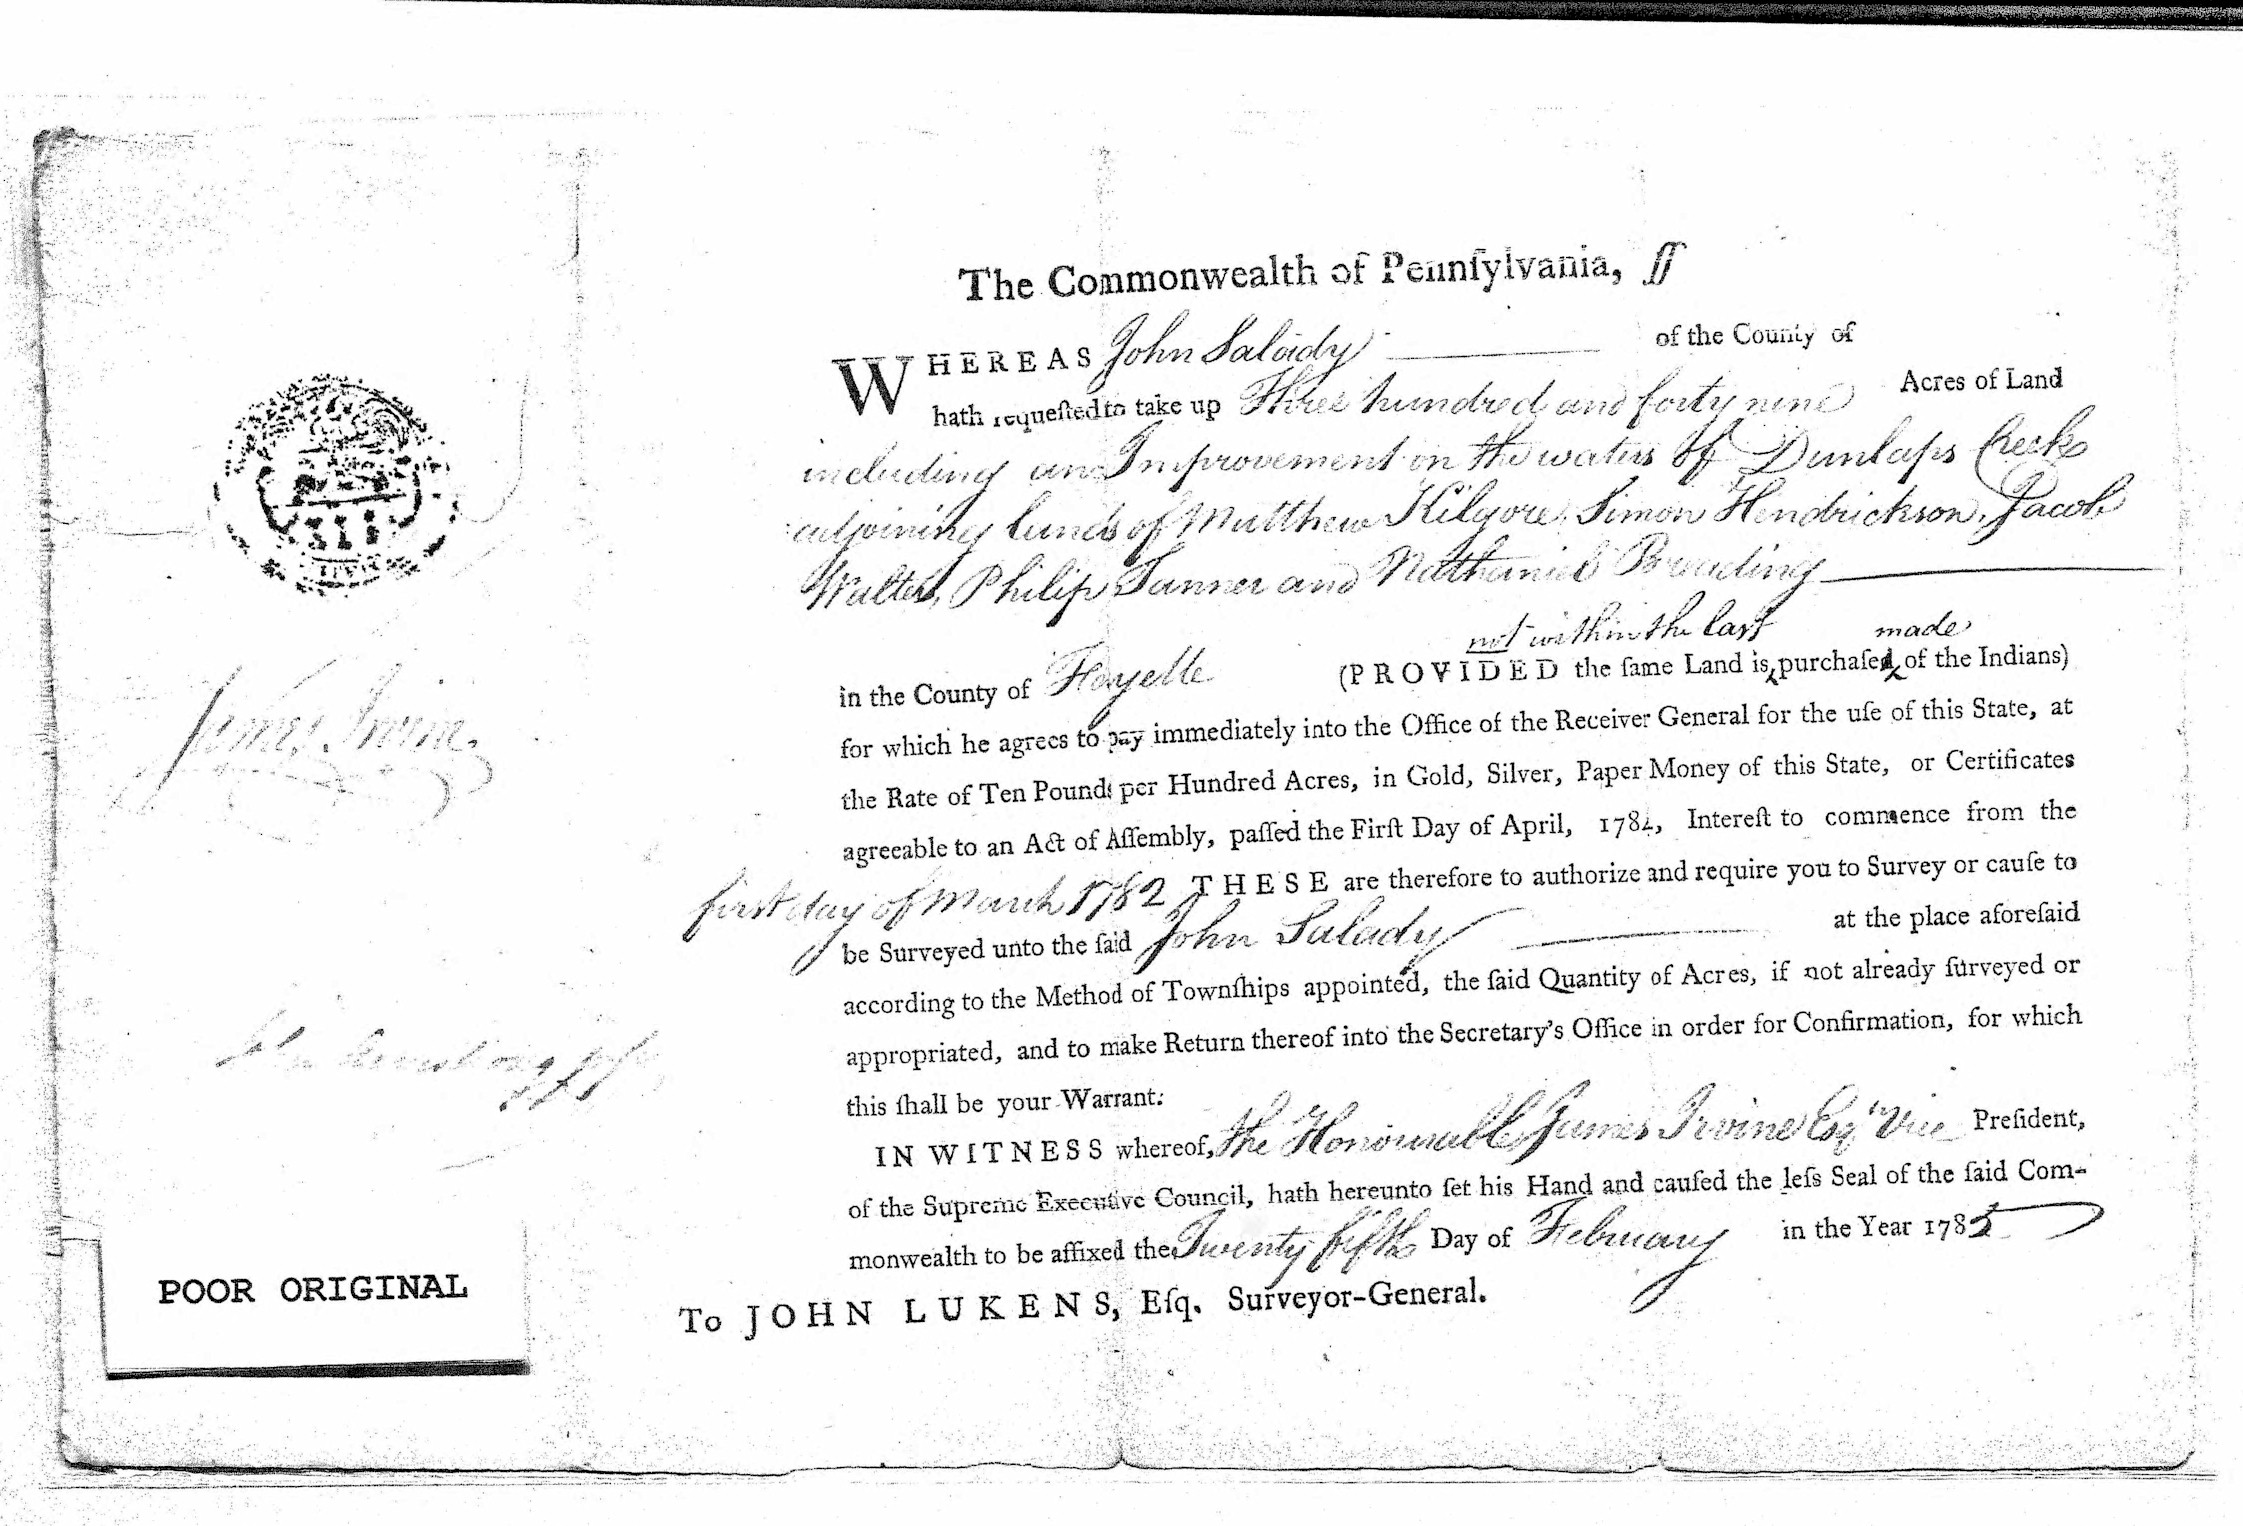 The Commonwealth of Pennſylvania, ſſ
WHEREAS John Salady of the County of
hath requeſted to take up Three hundred and forty nine Acres of Land
including an Improvement on the waters of Dunlaps Creek
adjoining lands of Matthew Kilgore, Simon Hendrickson, Jacob
Walter, Philip Tanner and Nathaniel Breading
not within the last made
in the County of Fayette (PROVIDED the ſame Land is purchaſed of the Indians)
for which he agrees to pay immediately into the Office of the Receiver General for the uſe of this State, at
the Rate of Ten Pounds per Hundred Acres, in Gold, Silver, Paper Money of this State, or Certificates
agreeable to an Act of Aſſembly, paſſed the Firſt Day of April, 1784, Intereſt to commence from the
first day of March 1782 THESE are therefore to authorize and require you to Survey or cauſe to
be Surveyed unto the ſaid John Salady at the place aforeſaid
according to the Method of Townſhips appointed, the ſaid Quantity of Acres, if not already ſurveyed or
appropriated, and to make Return thereof into the Secretary's Office in order for Confirmation, for which
this ſhall be your Warrant:
IN WITNESS whereof, the Honourable James Irvine Esqr Vice Preſident,
of the Supreme Executive Council, hath hereunto ſet his Hand and cauſed the leſs Seal of the ſaid Com-
monwealth to be affixed the Twenty fifth Day of February in the Year 1785
To JOHN LUKENS, Eſq. Surveyor-General.
James Irvine
POOR ORIGINAL